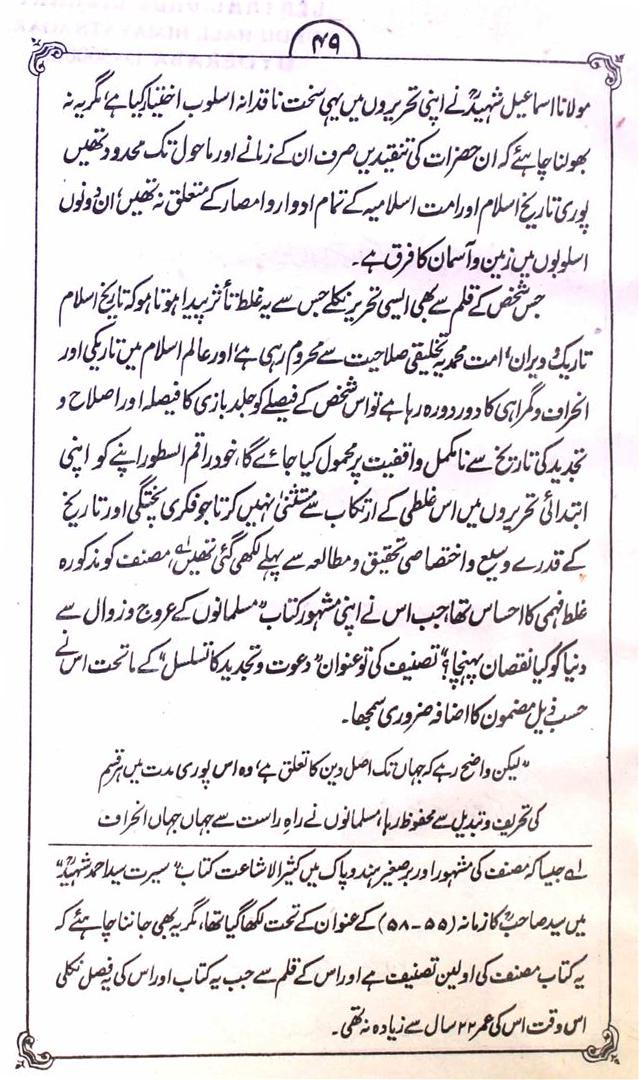 ۴۹
مولانا اسماعیل شہیدؒ نے اپنی تحریروں میں یہی سخت ناقدانہ اسلوب اختیار کیا ہے، مگر یہ نہ
بھولنا چاہئے کہ ان حضرات کی تنقیدیں صرف ان کے زمانے اور ماحول تک محدود تھیں
پوری تاریخ اسلام اور امت اسلامیہ کے تمام ادوار و امصار کے متعلق نہ تھیں، ان دونوں
اسلوبوں میں زمین و آسمان کا فرق ہے۔
جس شخص کے قلم سے بھی ایسی تحریر نکلے جس سے یہ غلط تأثر پیدا ہوتا ہو کہ تاریخ اسلام
تاریک و ویران، امت محمدیہ تخلیقی صلاحیت سے محروم رہی ہے، اور عالم اسلام میں تاریکی اور
انحراف و گمراہی کا دور دورہ رہا ہے تو اس شخص کے فیصلے کو جلد بازی کا فیصلہ اور اصلاح و
تجدید کی تاریخ سے نامکمل واقفیت پر محمول کیا جائے گا، خود راقم السطور اپنے کو اپنی
ابتدائی تحریروں میں اس غلطی کے ارتکاب سے مستثنیٰ نہیں کرتا جو فکری پختگی اور تاریخ
کے قدرے وسیع و اختصاصی تحقیق و مطالعہ سے پہلے لکھی گئی تھیں، لہ مصنف کو مذکورہ
غلط فہمی کا احساس تھا، جب اس نے اپنی مشہور کتاب "مسلمانوں کے عروج و زوال سے
دنیا کو کیا نقصان پہنچا؟" تصنیف کی تو عنوان "دعوت و تجدید کا تسلسل" کے ماتحت اس نے
حسب ذیل مضمون کا اضافہ ضروری سمجھا۔
"لیکن واضح رہے کہ جہاں تک اصل دین کا تعلق ہے، وہ اس پوری مدت میں ہر قسم
کی تحریف و تبدیل سے محفوظ رہا، مسلمانوں نے راہ راست سے جہاں جہاں انحراف
لہ جیسا کہ مصنف کی مشہور اور برصغیر ہند و پاک میں کثیر الاشاعت کتاب "سیرت سید احمد شہیدؒ"
میں سید صاحبؒ کا زمانہ (۵۵-۵۸) کے عنوان کے تحت لکھا گیا تھا، مگر یہ بھی جاننا چاہئے کہ
یہ کتاب مصنف کی اولین تصنیف ہے اور اس کے قلم سے جب یہ کتاب اور اس کی یہ فصل نکلی
اس وقت اس کی عمر ۲۲ سال سے زیادہ نہ تھی۔